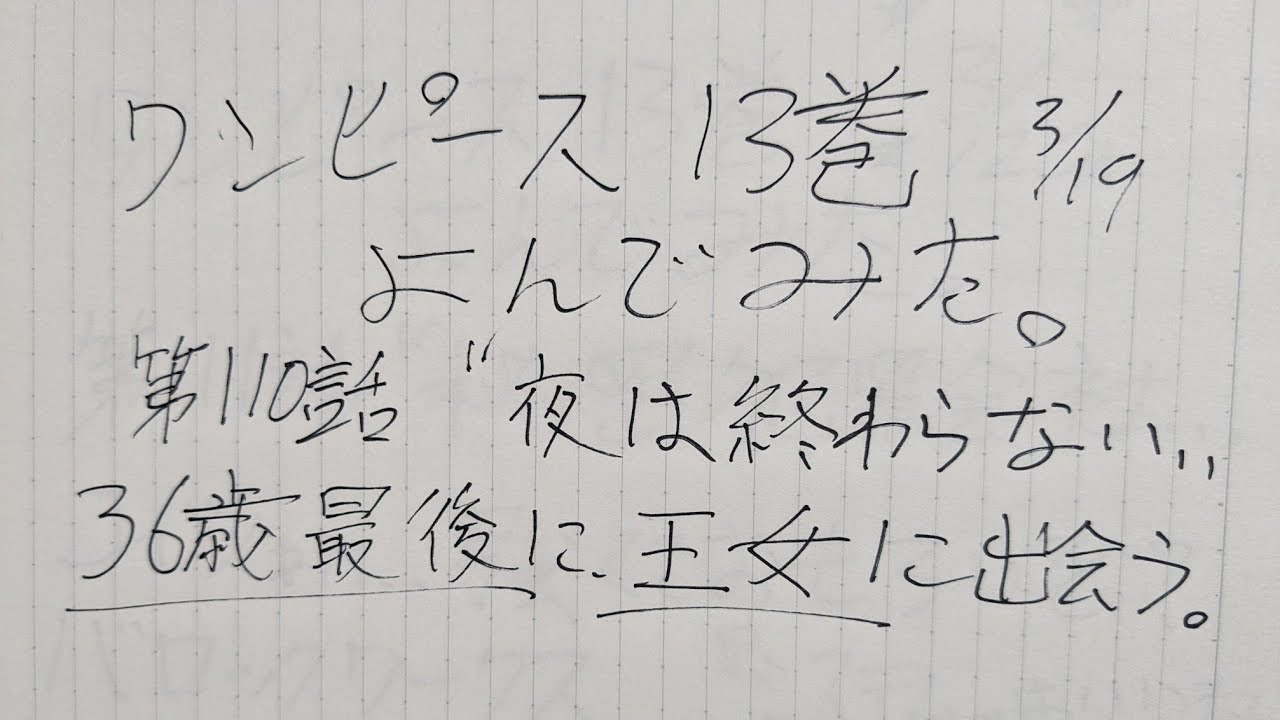 ワンピース 13巻 3/19
よんでみた。
第110話 "夜は終わらない"
36歳最後に、王女に出会う。